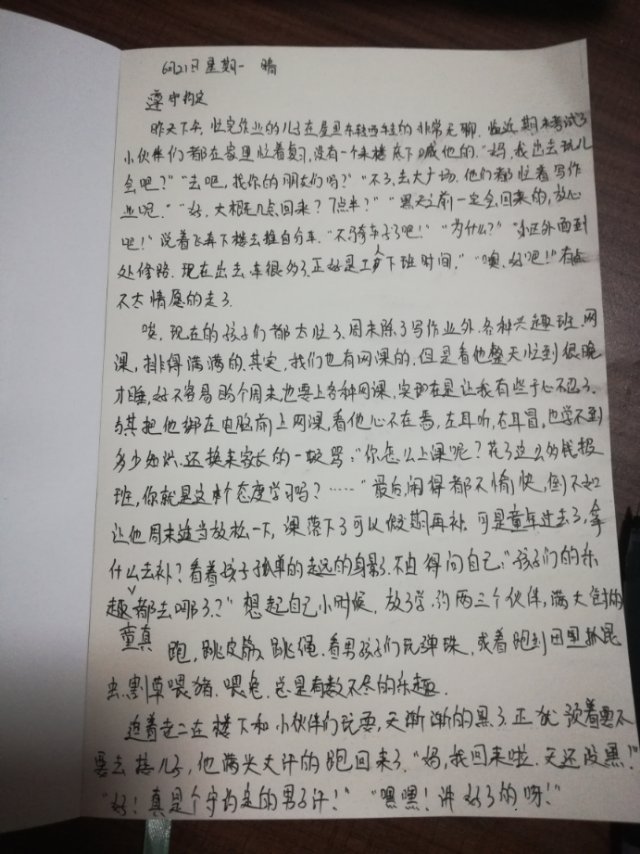 6月21日 星期一 晴
遵守约定
昨天下午,忙完作业的儿子在屋里转的非常无聊.临近期末考试了
小伙伴们都在家里忙着复习,没有一个来楼底下喊他的."妈,我出去玩儿
会吧?" "去吧,找你的朋友们吗?" "不了,去大广场.他们都忙着写作
业呢." "好.大概几点回来?7点半?" "黑天之前一定会回来的,放心
吧!"说着飞奔下楼去推自行车."不骑车子了吧!" "为什么?" "小区外面到
处修路.现在出去,车很多了.正好是工厂下班时间." "噢,好吧!"有点
不太情愿的走了.
唉,现在的孩子们都太忙了.周末除了写作业外.各种兴趣班.网
课,排得满满的.其实,我们也有网课的.但是看他整天忙到很晚
才睡,好不容易盼个周末也要上各种网课,实在是让我有些于心不忍了.
与其把他绑在电脑前上网课,看他心不在焉,左耳听,右耳冒,也学不到
多少知识.还换来家长的一顿骂:"你怎么上课呢?花了这么多钱报
班,你就是这个态度学习吗?……"最后,闹得都不愉快,倒不如
让他周末适当放松一下,课落下了可以假期再补.可是童年过去了,拿
什么去补?看着孩子孤单的走远的身影.不由得问自己,"孩子们的乐
趣都去哪了?"想起自己小时候,放了学,约两三个伙伴,满大街的
童真
跑,跳皮筋,跳绳.看男孩子们玩弹珠,或着跑到田里抓昆
虫.割草喂猪.喂兔.总是有数不尽的乐趣.
追着老二在楼下和小伙伴们玩耍,天渐渐的黑了.正犹豫着要不
要去接儿子,他满头大汗的跑回来了."妈,我回来啦.天还没黑!"
"好!真是个守约定的男子汉!" "嘿嘿!讲好了的呀!"